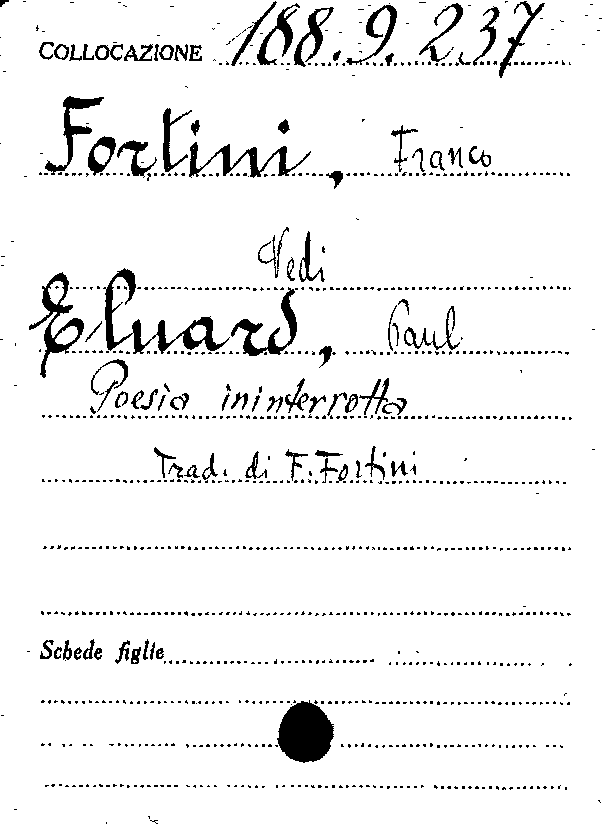 COLLOCAZIONE 188.9.237
Fortini, Franco
Vedi
Eluard, Paul
Poesia ininterrotta
Trad. di F. Fortini
Schede figlie